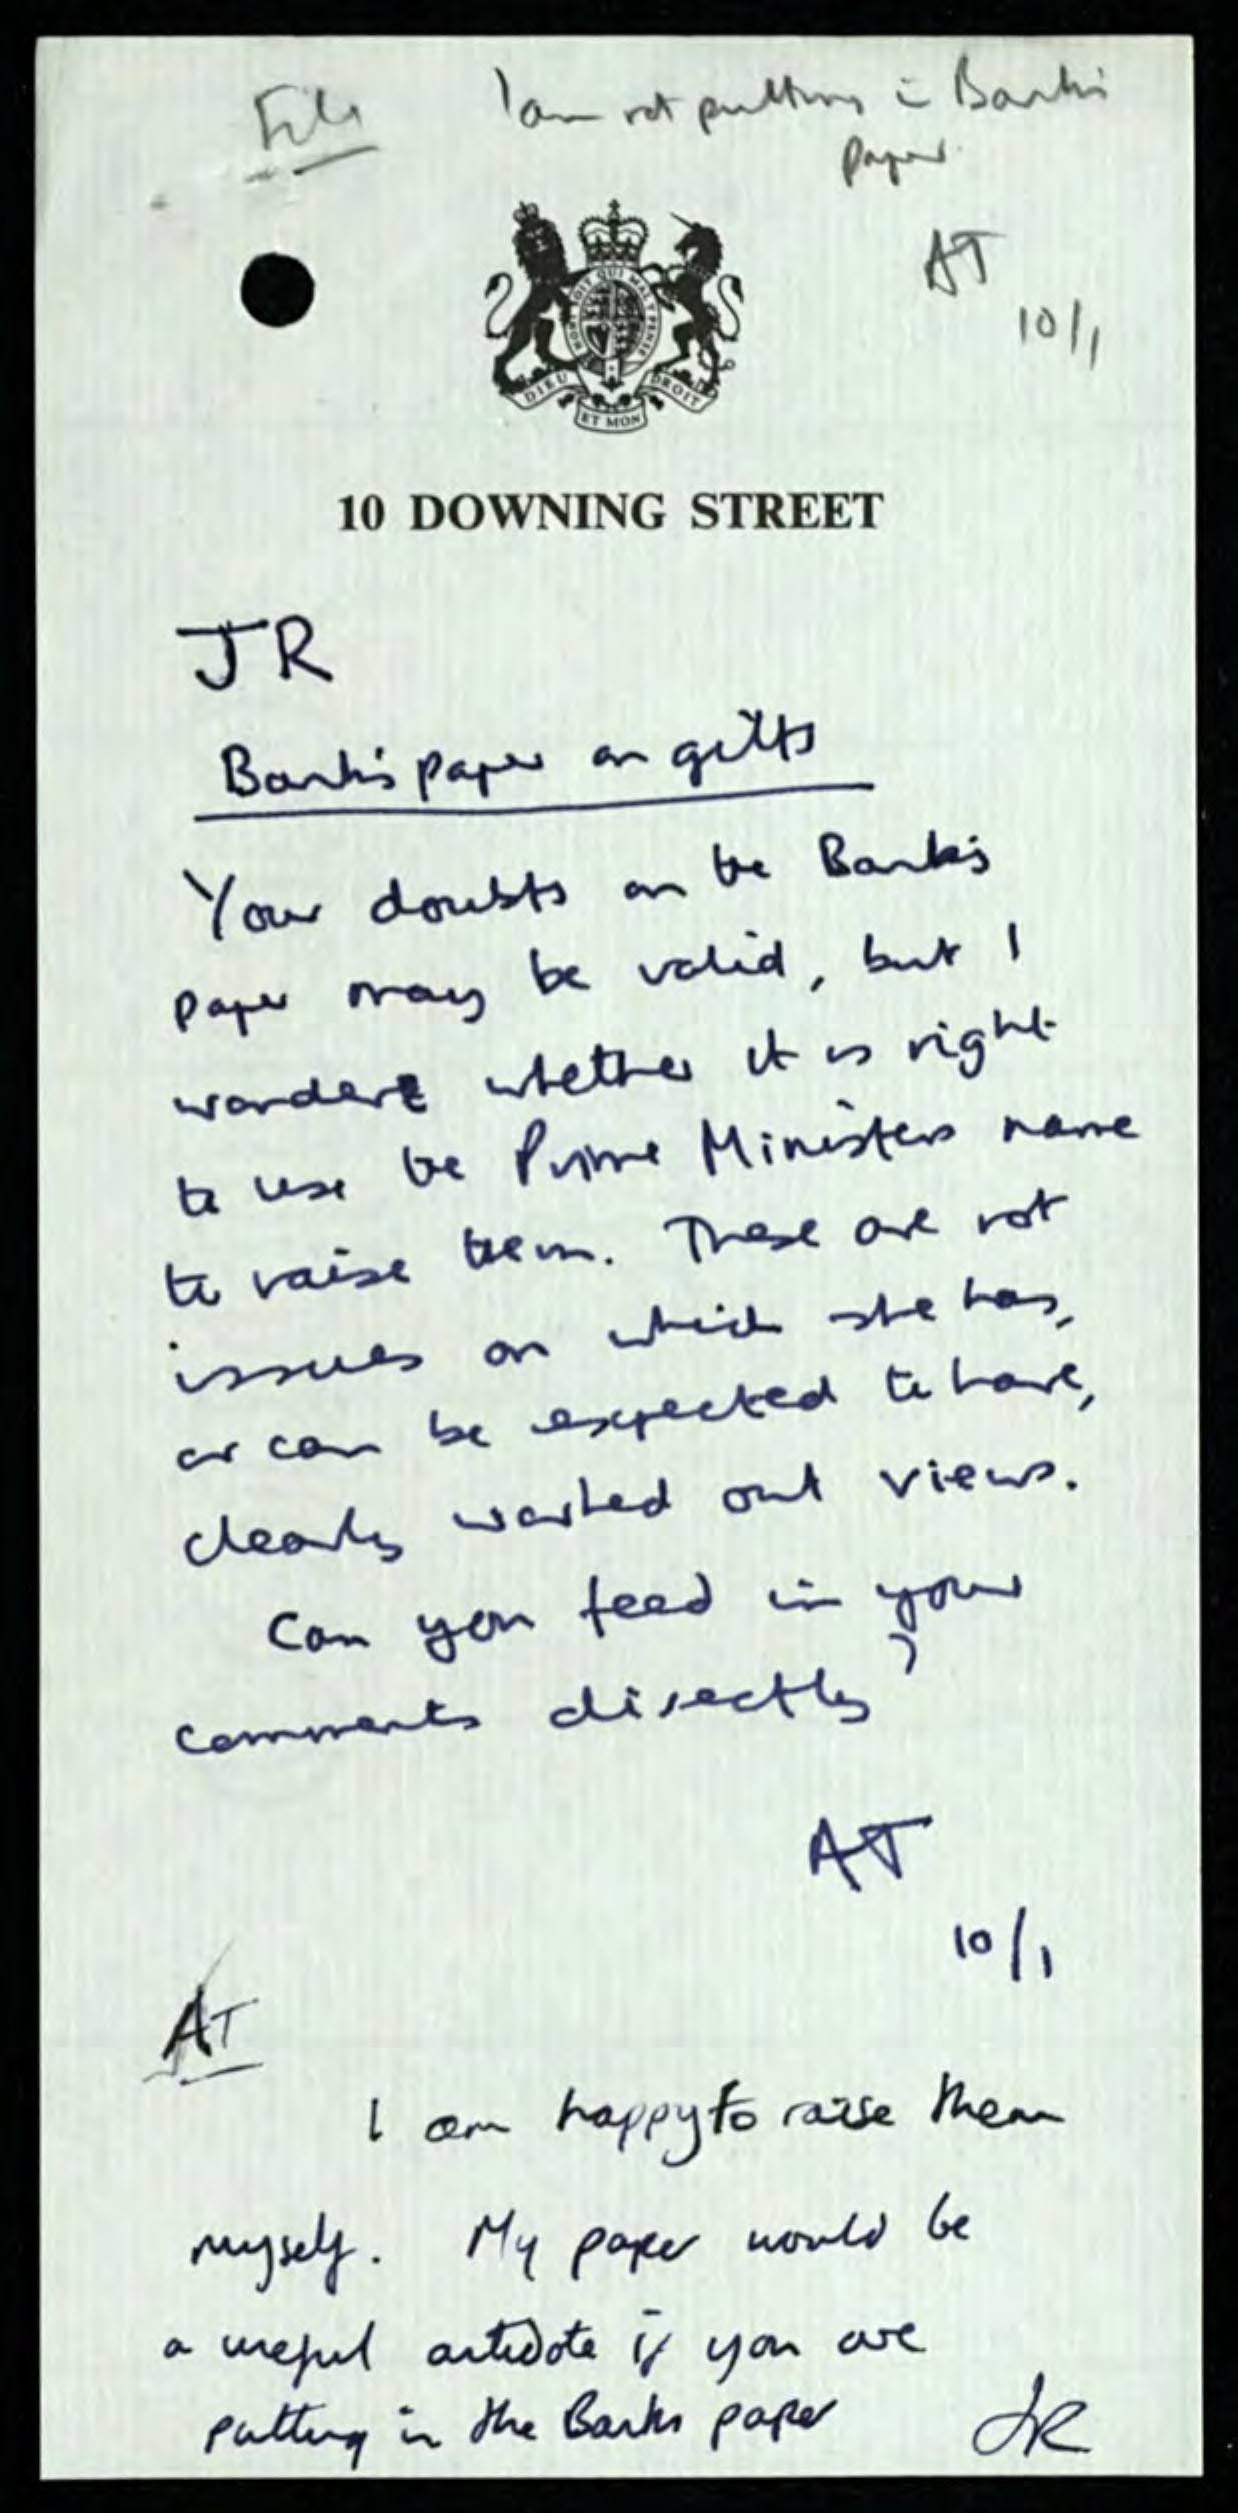 File
I am not putting in Bank's
paper.
AT
10/1
HONI SOIT QUI MAL Y PENSE
DIEU ET MON DROIT
10 DOWNING STREET
JR
Bank's paper on gilts
Your doubts on the Bank's
paper may be valid, but I
wonder whether it is right
to use the Prime Ministers name
to raise them. These are not
issues on which she has,
or can be expected to have,
clearly worked out views.
Can you feed in your
comments directly?
AT
10/1
AT
I am happy to raise them
myself. My paper would be
a useful antidote if you are
putting in the Banks paper
JR